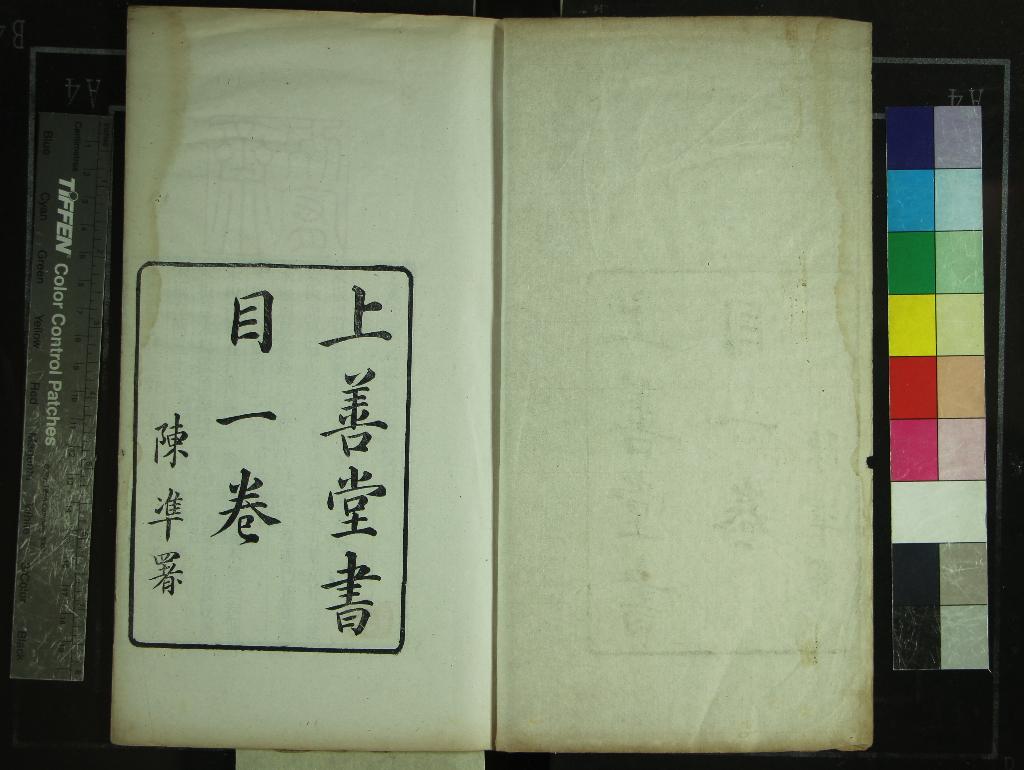 上善堂書
目一卷
陳準署
TIFFEN Color Control Patches
Blue
Cyan
Green
Yellow
Red
Magenta
White
3/Color
Black
Centimetres
A4
A4
B4